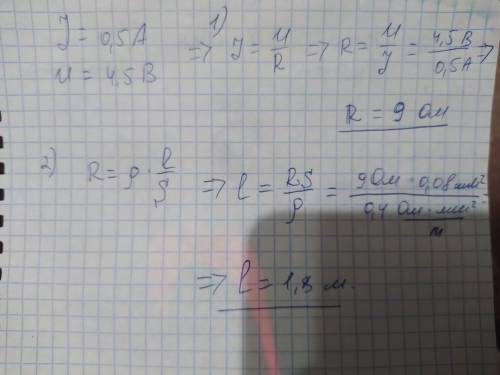 J = 0,5A
U = 4,5 В
1)
=> J = U/R => R = U/J = 4,5 В/0,5A =>
R = 9 Ом
2) R = ρ · l/S => l = RS/ρ = 9 Ом · 0,08 мм²/0,4 Ом · мм²/м
=> l = 1,8 м.